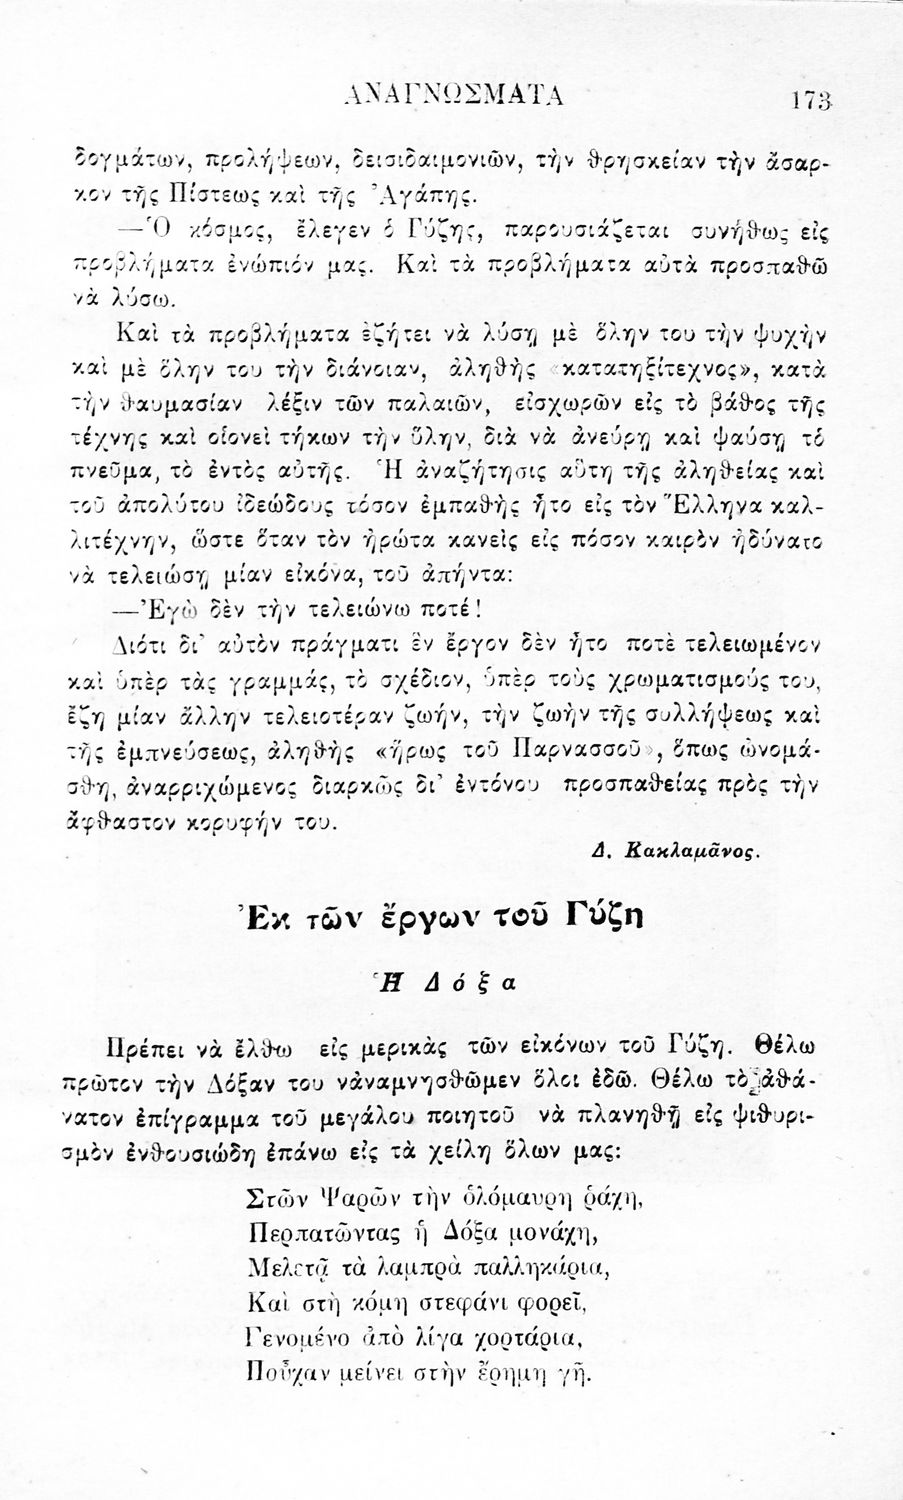 ΑΝΑΓΝΩΣΜΑΤΑ 173
δογμάτων, προλήψεων, δεισιδαιμονιῶν, τὴν θρησκείαν τὴν ἄσαρ-
κον τῆς Πίστεως καὶ τῆς Ἀγάπης.
—Ὁ κόσμος, ἔλεγεν ὁ Γύζης, παρουσιάζεται συνήθως εἰς
προβλήματα ἐνώπιόν μας. Καὶ τὰ προβλήματα αὐτὰ προσπαθῶ
νὰ λύσω.
Καὶ τὰ προβλήματα ἐζήτει νὰ λύσῃ μὲ ὅλην του τὴν ψυχὴν
καὶ μὲ ὅλην του τὴν διάνοιαν, ἀληθὴς «κατατηξίτεχνος», κατὰ
τὴν θαυμασίαν λέξιν τῶν παλαιῶν, εἰσχωρῶν εἰς τὸ βάθος τῆς
τέχνης καὶ οἱονεὶ τήκων τὴν ὕλην, διὰ νὰ ἀνεύρῃ καὶ ψαύσῃ τὸ
πνεῦμα, τὸ ἐντὸς αὐτῆς. Ἡ ἀναζήτησις αὕτη τῆς ἀληθείας καὶ
τοῦ ἀπολύτου ἰδεώδους τόσον ἐμπαθὴς ἦτο εἰς τὸν Ἕλληνα καλ-
λιτέχνην, ὥστε ὅταν τὸν ἠρώτα κανεὶς εἰς πόσον καιρὸν ἠδύνατο
νὰ τελειώσῃ μίαν εἰκόνα, τοῦ ἀπήντα:
—Ἐγὼ δὲν τὴν τελειώνω ποτέ!
Διότι δι' αὐτὸν πράγματι ἓν ἔργον δὲν ἦτο ποτὲ τελειωμένον
καὶ ὑπὲρ τὰς γραμμάς, τὸ σχέδιον, ὑπὲρ τοὺς χρωματισμούς του,
ἔζη μίαν ἄλλην τελειοτέραν ζωήν, τὴν ζωὴν τῆς συλλήψεως καὶ
τῆς ἐμπνεύσεως, ἀληθὴς «ἥρως τοῦ Παρνασσοῦ», ὅπως ὠνομά-
σθη, ἀναρριχώμενος διαρκῶς δι' ἐντόνου προσπαθείας πρὸς τὴν
ἄφθαστον κορυφήν του.
Δ. Κακλαμᾶνος.
Ἐκ τῶν ἔργων τοῦ Γύζη
Ἡ Δόξα
Πρέπει νὰ ἔλθω εἰς μερικὰς τῶν εἰκόνων τοῦ Γύζη. Θέλω
πρῶτον τὴν Δόξαν του νἀναμνησθῶμεν ὅλοι ἐδῶ. Θέλω τὸ ἀθά-
νατον ἐπίγραμμα τοῦ μεγάλου ποιητοῦ νὰ πλανηθῇ εἰς ψιθυρι-
σμὸν ἐνθουσιώδη ἐπάνω εἰς τὰ χείλη ὅλων μας:
Στῶν Ψαρῶν τὴν ὁλόμαυρη ῥάχη,
Περπατῶντας ἡ Δόξα μονάχη,
Μελετᾷ τὰ λαμπρὰ παλληκάρια,
Καὶ στὴ κόμη στεφάνι φορεῖ,
Γενομένο ἀπὸ λίγα χορτάρια,
Ποῦχαν μείνει στὴν ἔρημη γῆ.